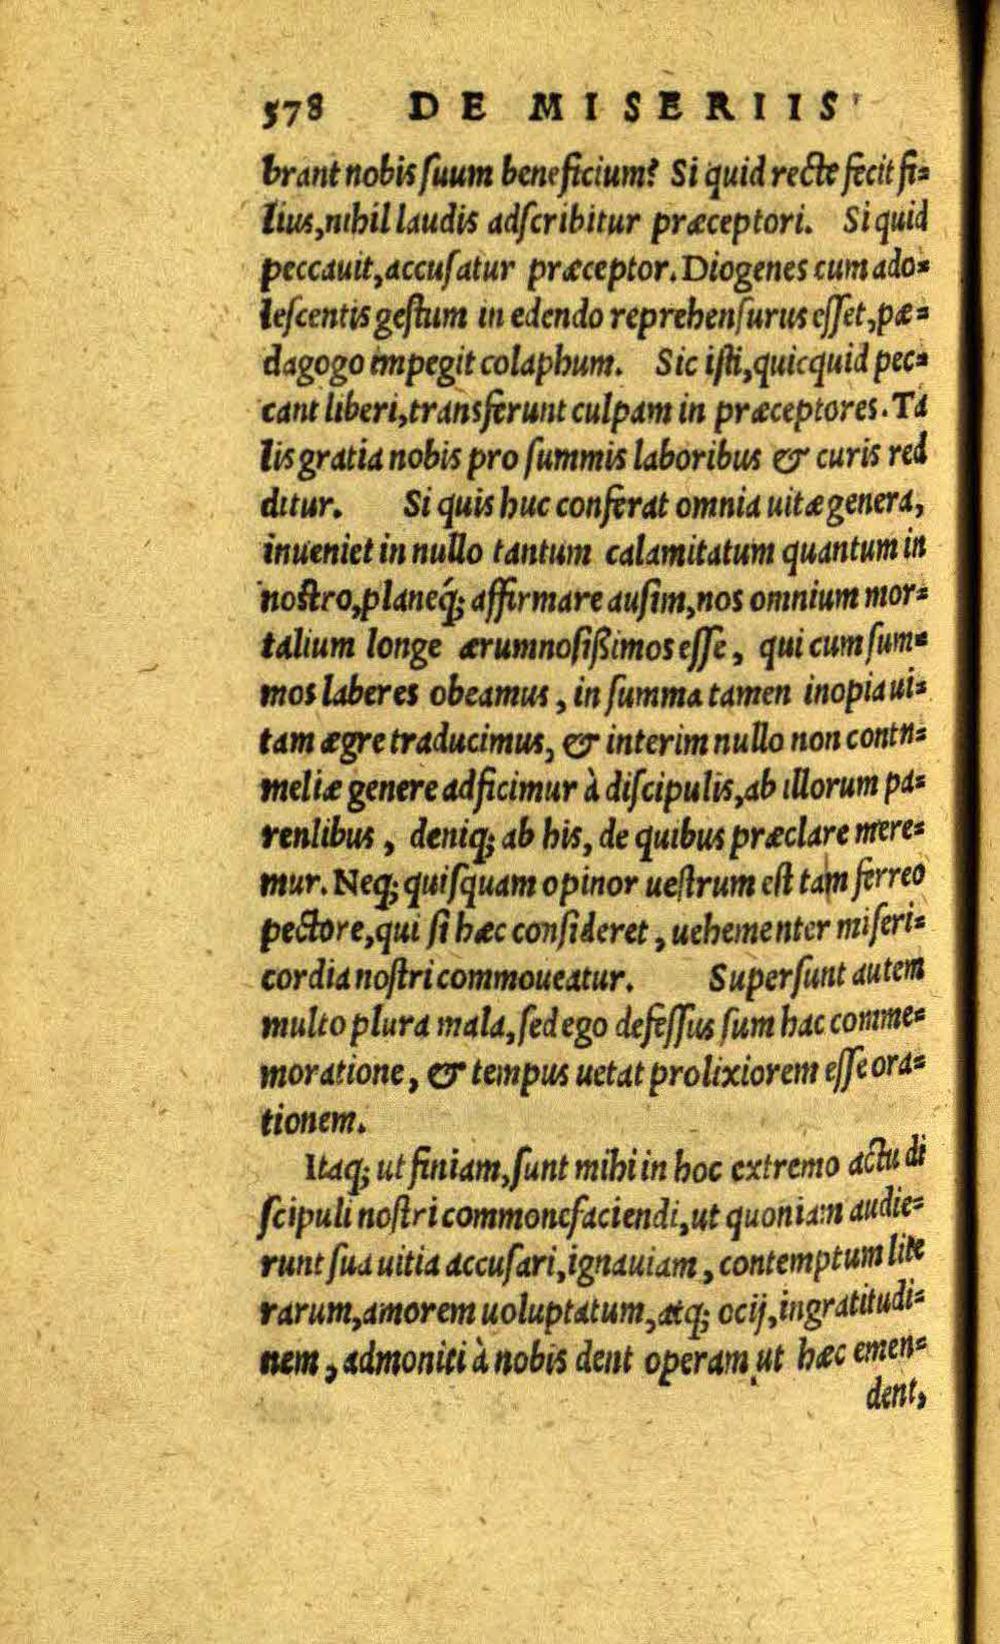 578 DE MISERIIS
brant nobis ſuum beneficium? Si quid recte fecit fi=
lius, nihil laudis adſcribitur præceptori. Si quid
peccauit, accuſatur præceptor. Diogenes cum ado=
leſcentis geſtum in edendo reprehenſurus eſſet, pæ=
dagogo impegit colaphum. Sic iſti, quicquid pec=
cant liberi, transferunt culpam in præceptores. Ta
lis gratia nobis pro ſummis laboribus & curis red
ditur. Si quis huc conferat omnia uitæ genera,
inueniet in nullo tantum calamitatum quantum in
noſtro, planeq́; affirmare auſim, nos omnium mor=
talium longe ærumnoſißimos eſſe, qui cum ſum=
mos laberes obeamus, in ſumma tamen inopia ui=
tam ægre traducimus, & interim nullo non contu=
meliæ genere adficimur à diſcipulis, ab illorum pa=
renlibus, deniq; ab his, de quibus præclare mere=
mur. Neq; quiſquam opinor ueſtrum eſt tam ferreo
pectore, qui ſi hæc conſideret, uehementer miſeri=
cordia noſtri commoueatur. Superſunt autem
multo plura mala, ſed ego defeſſus ſum hac comme=
moratione, & tempus uetat prolixiorem eſſe ora=
tionem.
Itaq; ut finiam, ſunt mihi in hoc extremo actu di
ſcipuli noſtri commonefaciendi, ut quoniam audie=
runt ſua uitia accuſari, ignauiam, contemptum lite
rarum, amorem uoluptatum, atq; ocij, ingratitudi=
nem, admoniti à nobis dent operam ut hæc emen=
dent,